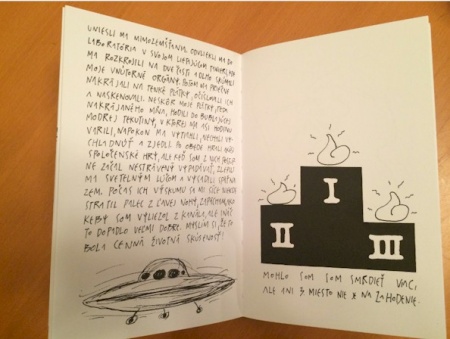 UNIESLI MA MIMOZEMŠŤANIA. ODVLIEKLI MA DO
LABORATÓRIA V SVOJOM LIETAJÚCOM
MA ROZKROJILI NA DVE ČASTI A DLHO SKÚMALI
MOJE VNÚTORNÉ ORGÁNY. POTOM MA PRIEČNE
NAKRÁJALI NA TENKÉ PLÁTKY, OČÍSLOVALI ICH
A NASKENOVALI. NESKÔR MOJE PLÁTKY, TEDA
NAKRÁJANÉHO MŇA, HODILI DO BUBLAJÚCEJ
MODREJ TEKUTINY, V KTOREJ MA ASI HODINU
VARILI, NAPOKON MA VYTIAHLI, NECHALI VY-
CHLADNÚŤ A ZJEDLI. PO OBEDE HRALI
SPOLOČENSKÉ HRY, ALE KEĎ SOM Z NICH
NE ZAČAL NESTRÁVENÝ VYPADÁVAŤ, ZLEPILI
MA SVETELNÝM LÚČOM A VYSADILI SPÄŤ NA
ZEM. POČAS ICH VÝSKUMU SA MI SÍCE
STRATIL PALEC Z ĽAVEJ NOHY, ZAPÁCHAM AKO
KEBY SOM VYLIEZOL Z KANÁLA, ALE INÁČ
TO DOPADLO VEĽMI DOBRE. MYSLÍM SI, ŽE TO
BOLA CENNÁ ŽIVOTNÁ SKÚSENOSŤ!
I
II
III
MOHLO SOM SOM SMRDIEŤ VIAC,
ALE ANI 3. MIESTO NIE JE NA ZAHODENIE.